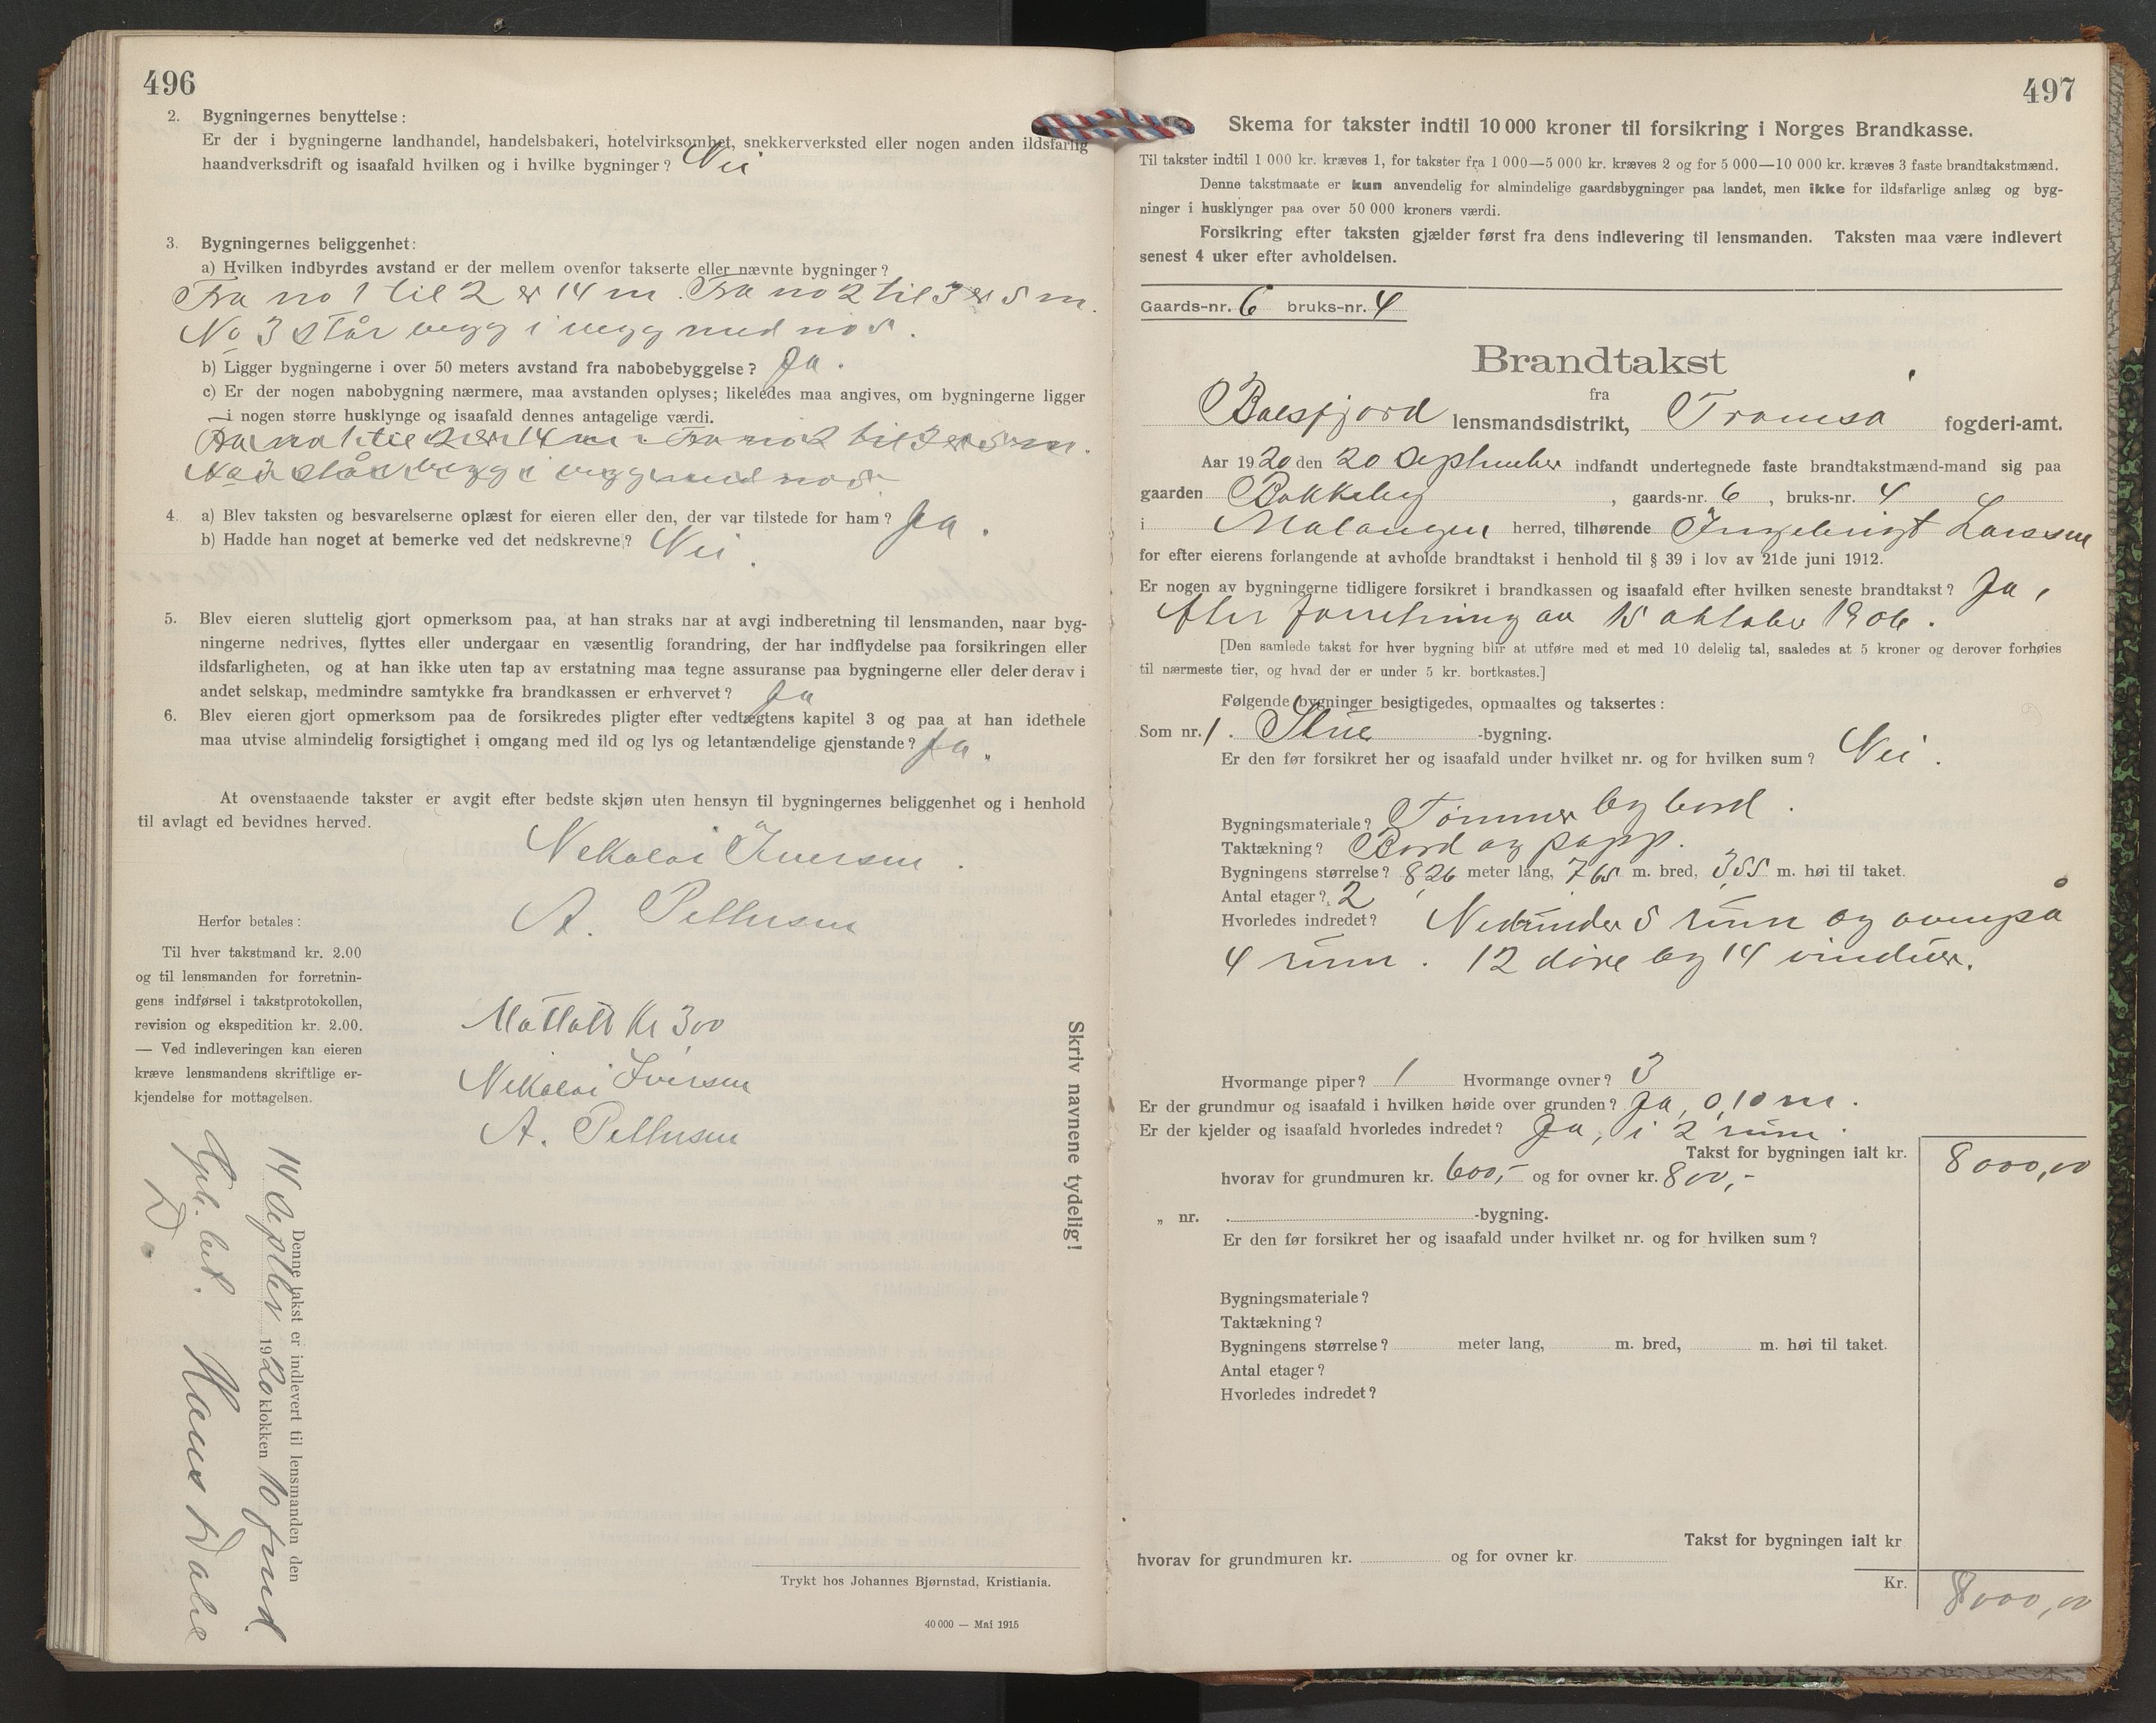 496
2. Bygningernes benyttelse:
Er der i bygningerne landhandel, handelsbakeri, hotelvirksomhet, snekkerverksted eller nogen anden ildsfarlig
haandverksdrift og isaafald hvilken og i hvilke bygninger? Nei
3. Bygningernes beliggenhet:
a) Hvilken indbyrdes avstand er der mellem ovenfor takserte eller nævnte bygninger?
Fra no 1 til 2 er 14 m. Fra no 2 til 3 er 5 m.
No 3 står vegg i vegg med no 5.
b) Ligger bygningerne i over 50 meters avstand fra nabobebyggelse? Ja.
c) Er der nogen nabobygning nærmere, maa avstanden oplyses; likeledes maa angives, om bygningerne ligger
i nogen større husklynge og isaafald dennes antagelige værdi.
Fra no 1 til 2 er 14 m. Fra no 2 til 3 er 5 m.
No 3 står vegg i vegg med no 5
4. a) Blev taksten og besvarelserne oplæst for eieren eller den, der var tilstede for ham? Ja.
b) Hadde han noget at bemerke ved det nedskrevne? Nei.
5. Blev eieren sluttelig gjort opmerksom paa, at han straks har at avgi indberetning til lensmanden, naar byg-
ningerne nedrives, flyttes eller undergaar en væsentlig forandring, der har indflydelse paa forsikringen eller
ildsfarligheten, og at han ikke uten tap av erstatning maa tegne assuranse paa bygningerne eller deler derav i
andet selskap, medmindre samtykke fra brandkassen er erhvervet? Ja
6. Blev eieren gjort opmerksom paa de forsikredes pligter efter vedtægtens kapitel 3 og paa at han idethele
maa utvise almindelig forsigtighet i omgang med ild og lys og letantændelige gjenstande? Ja.
At ovenstaaende takster er avgit efter bedste skjøn uten hensyn til bygningernes beliggenhet og i henhold
til avlagt ed bevidnes herved.
Nekolai Iversen.
A. Pettersen
Herfor betales:
Til hver takstmand kr. 2.00
og til lensmanden for forretnin-
gens indførsel i takstprotokollen,
revision og ekspedition kr. 2.00.
— Ved indleveringen kan eieren
kræve lensmandens skriftlige er-
kjendelse for mottagelsen.
Mottatt Kr 300
Nekolai Iversen
A. Pettersen
Skriv navnene tydelig!
Denne takst er indlevert til lensmanden den
14 Septbr 1920 klokken 10 fmd.
Hans
D.
Trykt hos Johannes Bjørnstad, Kristiania.
40 000 — Mai 1915
497
Skema for takster indtil 10 000 kroner til forsikring i Norges Brandkasse.
Til takster indtil 1 000 kr. kræves 1, for takster fra 1 000—5 000 kr. kræves 2 og for 5 000—10 000 kr. kræves 3 faste brandtakstmænd.
Denne takstmaate er kun anvendelig for almindelige gaardsbygninger paa landet, men ikke for ildsfarlige anlæg og byg-
ninger i husklynger paa over 50 000 kroners værdi.
Forsikring efter taksten gjælder først fra dens indlevering til lensmanden. Taksten maa være indlevert
senest 4 uker efter avholdelsen.
Gaards-nr. 6 bruks-nr. 4
Brandtakst
fra
Balsfjord lensmandsdistrikt, Tromsø fogderi-amt.
Aar 1920 den 20 September indfandt undertegnede faste brandtakstmænd-mand sig paa
gaarden Bakkeby, gaards-nr. 6, bruks-nr. 4
i Malangen herred, tilhørende Ingebrigt Larssen
for efter eierens forlangende at avholde brandtakst i henhold til § 39 i lov av 21de juni 1912.
Er nogen av bygningerne tidligere forsikret i brandkassen og isaafald efter hvilken seneste brandtakst? Ja,
efter forretning av 15 oktober 1906.
[Den samlede takst for hver bygning blir at utføre med et med 10 delelig tal, saaledes at 5 kroner og derover forhøies
til nærmeste tier, og hvad der er under 5 kr. bortkastes.]
Følgende bygninger besigtigedes, opmaaltes og taksertes:
Som nr. 1. Stue -bygning.
Er den før forsikret her og isaafald under hvilket nr. og for hvilken sum? Nei.
Bygningsmateriale? Tømmer og bord.
Taktækning? Bord og papp.
Bygningens størrelse? 8,26 meter lang, 7,65 m. bred, 3,55 m. høi til taket.
Antal etager? 2
Hvorledes indredet? Nedunder 5 rum og ovenpå
4 rum. 12 døre og 14 vinduer.
Hvormange piper? 1 Hvormange ovner? 3
Er der grundmur og isaafald i hvilken høide over grunden? Ja, 0,10 m.
Er der kjelder og isaafald hvorledes indredet? Ja, i 2 rum.
Takst for bygningen ialt kr. 8000,00
hvorav for grundmuren kr. 600,- og for ovner kr. 800,-
„ nr. . -bygning.
Er den før forsikret her og isaafald under hvilket nr. og for hvilken sum?
Bygningsmateriale?
Taktækning?
Bygningens størrelse? meter lang, m. bred, m. høi til taket.
Antal etager?
Hvorledes indredet?
Takst for bygningen ialt kr
hvorav for grundmuren kr. og for ovner kr.
Kr. 8000,00